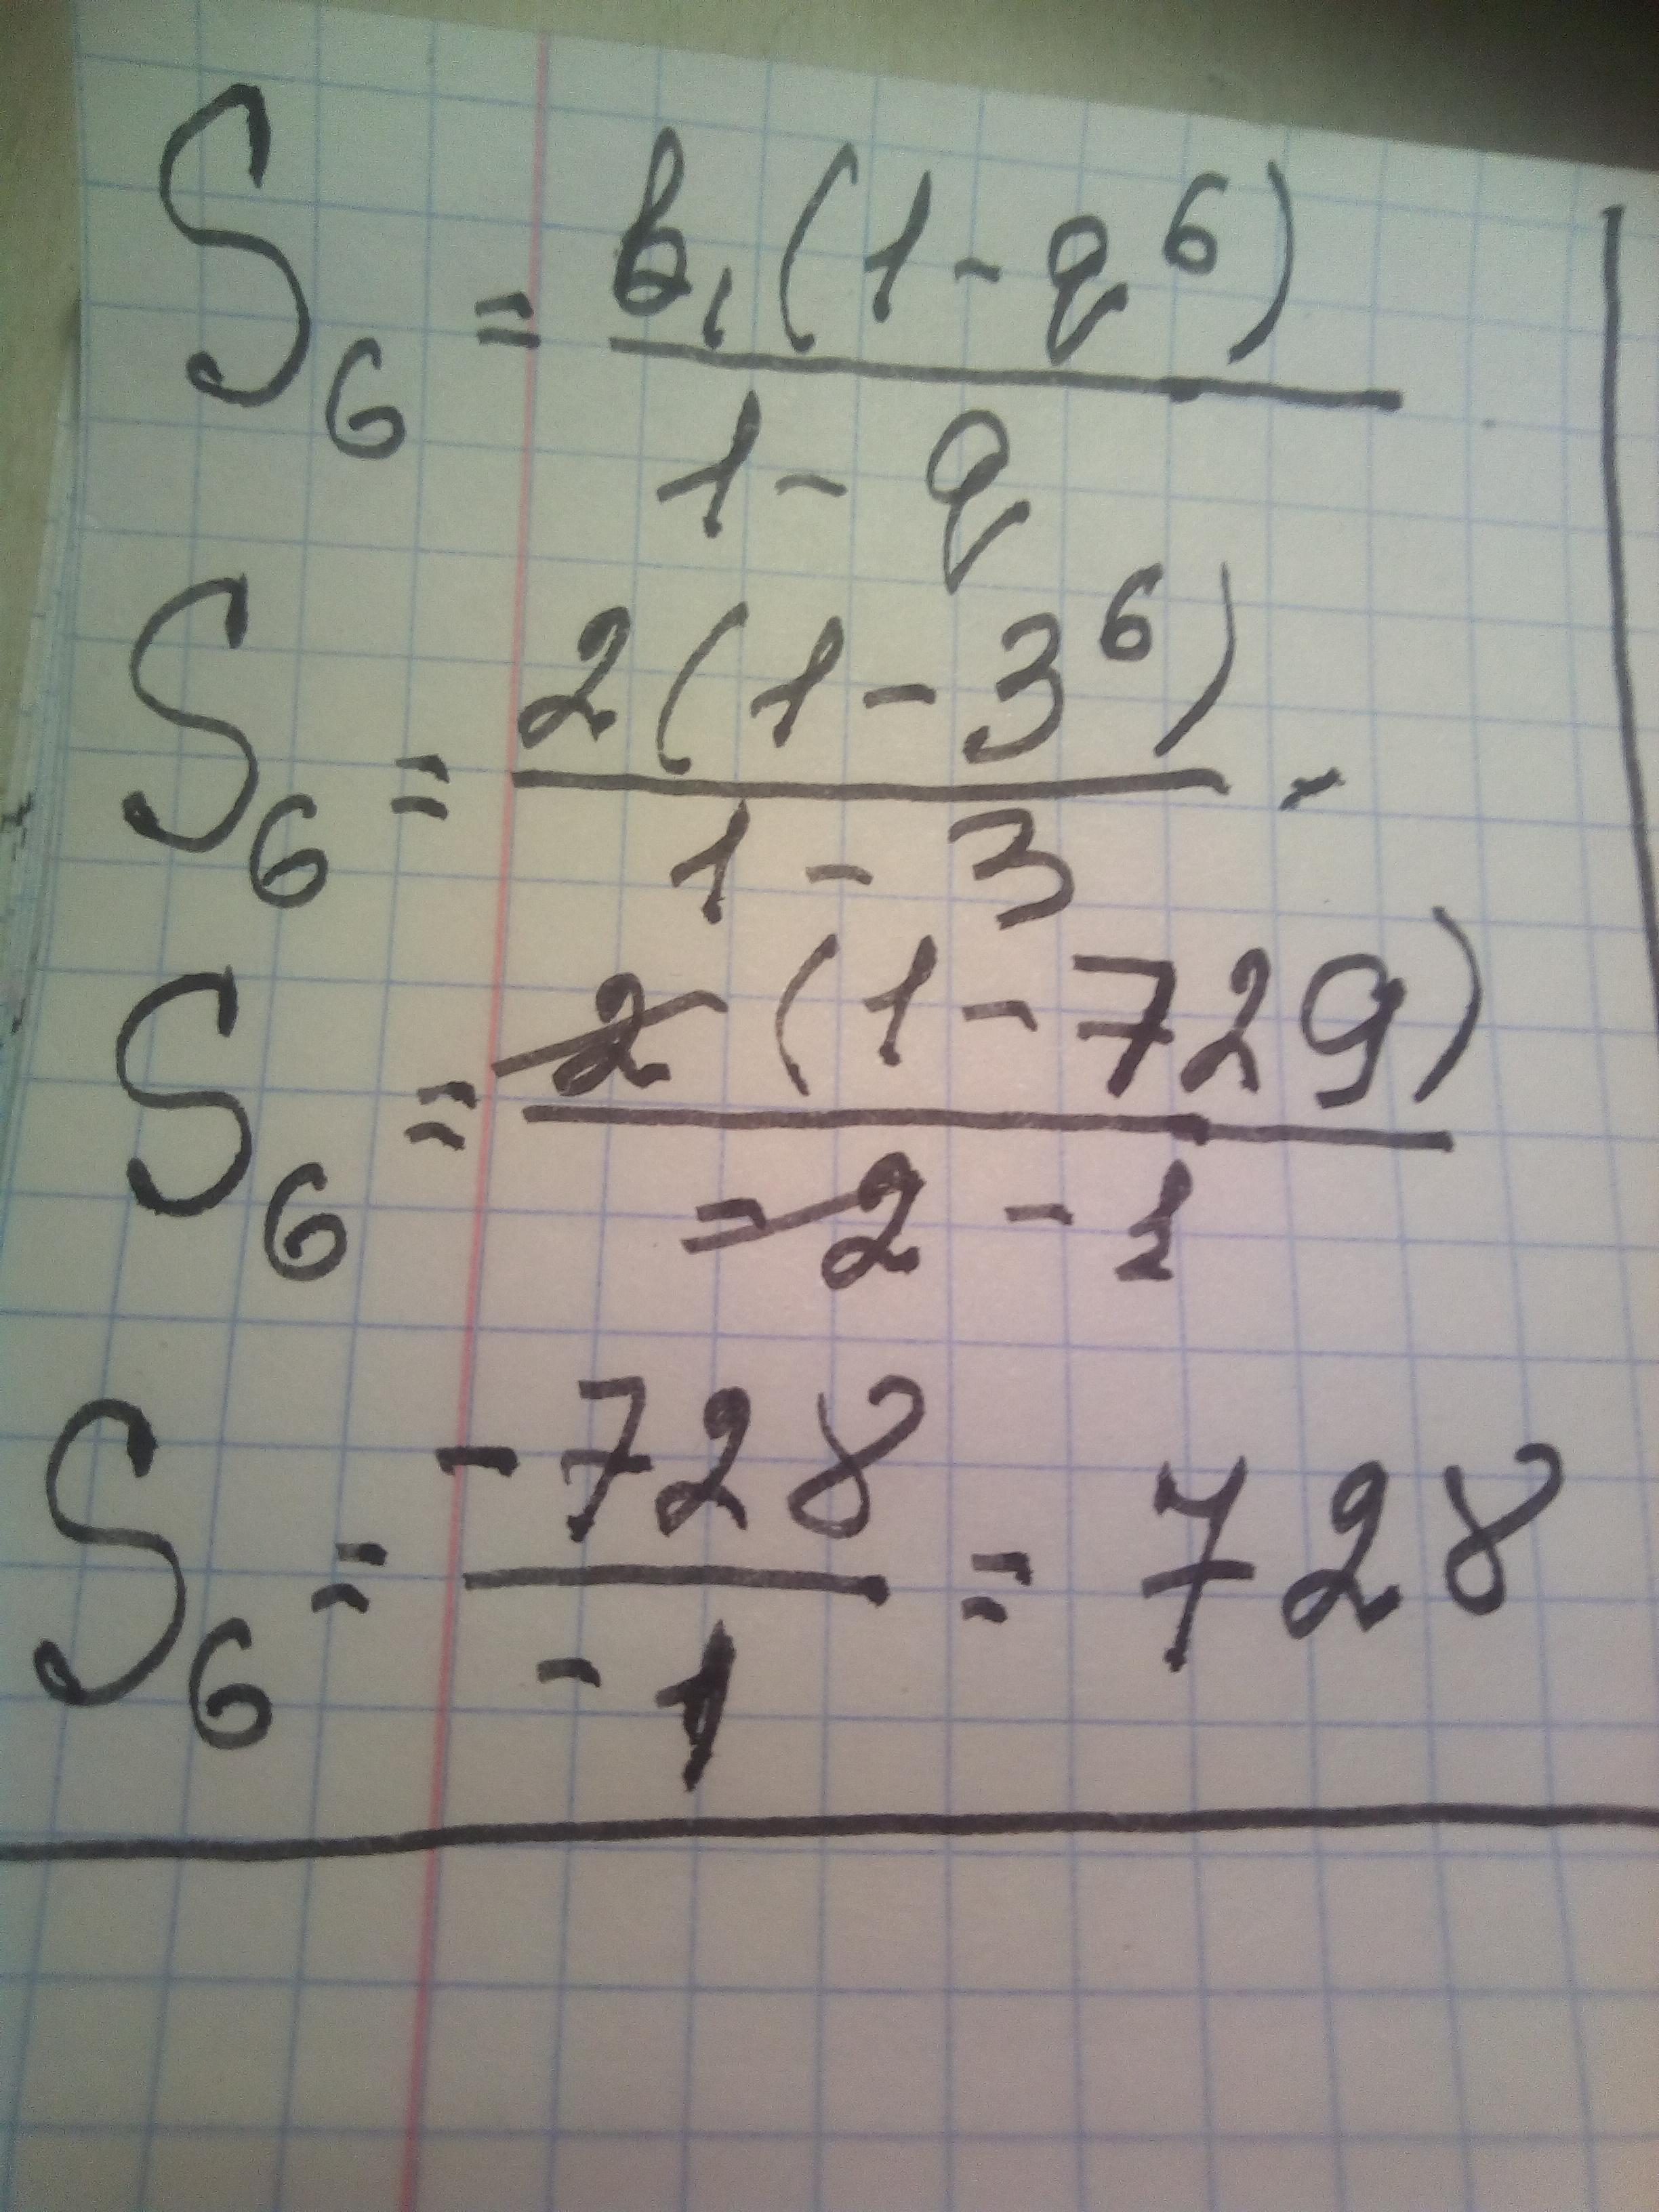 S₆ = b₁(1-q⁶) / 1-q
S₆ = 2(1-3⁶) / 1-3 -
S₆ = 2(1-729) / -2 -1
S₆ = -728 / -1 = 728